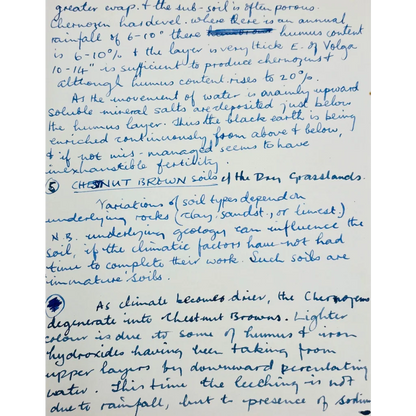 greater evap. & the sub-soil is often porous.
Chernozen has devel. where there is an annual
rainfall of 6-10" there humus content
is 6-10% & the layer is very thick E. of Volga
10-14" is sufficient to produce chernozems &
although humus content rises to 20%.
As the movement of water is mainly upward
soluble mineral salts are deposited just below
the humus layer. Thus the black earth is being
enriched continuously from above & below,
& if not mis-managed seems to have
inexhaustible fertility.
⑤ CHESTNUT BROWN Soils of the Dry Grasslands.
Variations of soil types depend on
underlying rocks (clay, sandst., or limest.)
N.B. underlying geology can influence the
soil, if the climatic factors have not had
time to complete their work. Such soils are
immature soils.
As climate becomes drier, the Chernozens
degenerate into Chestnut Browns. Lighter
colour is due to some of humus & iron
hydroxides having been taking from
upper layers by downward percolating
water. This time the leeching is not
due to rainfall, but to presence of Sodium